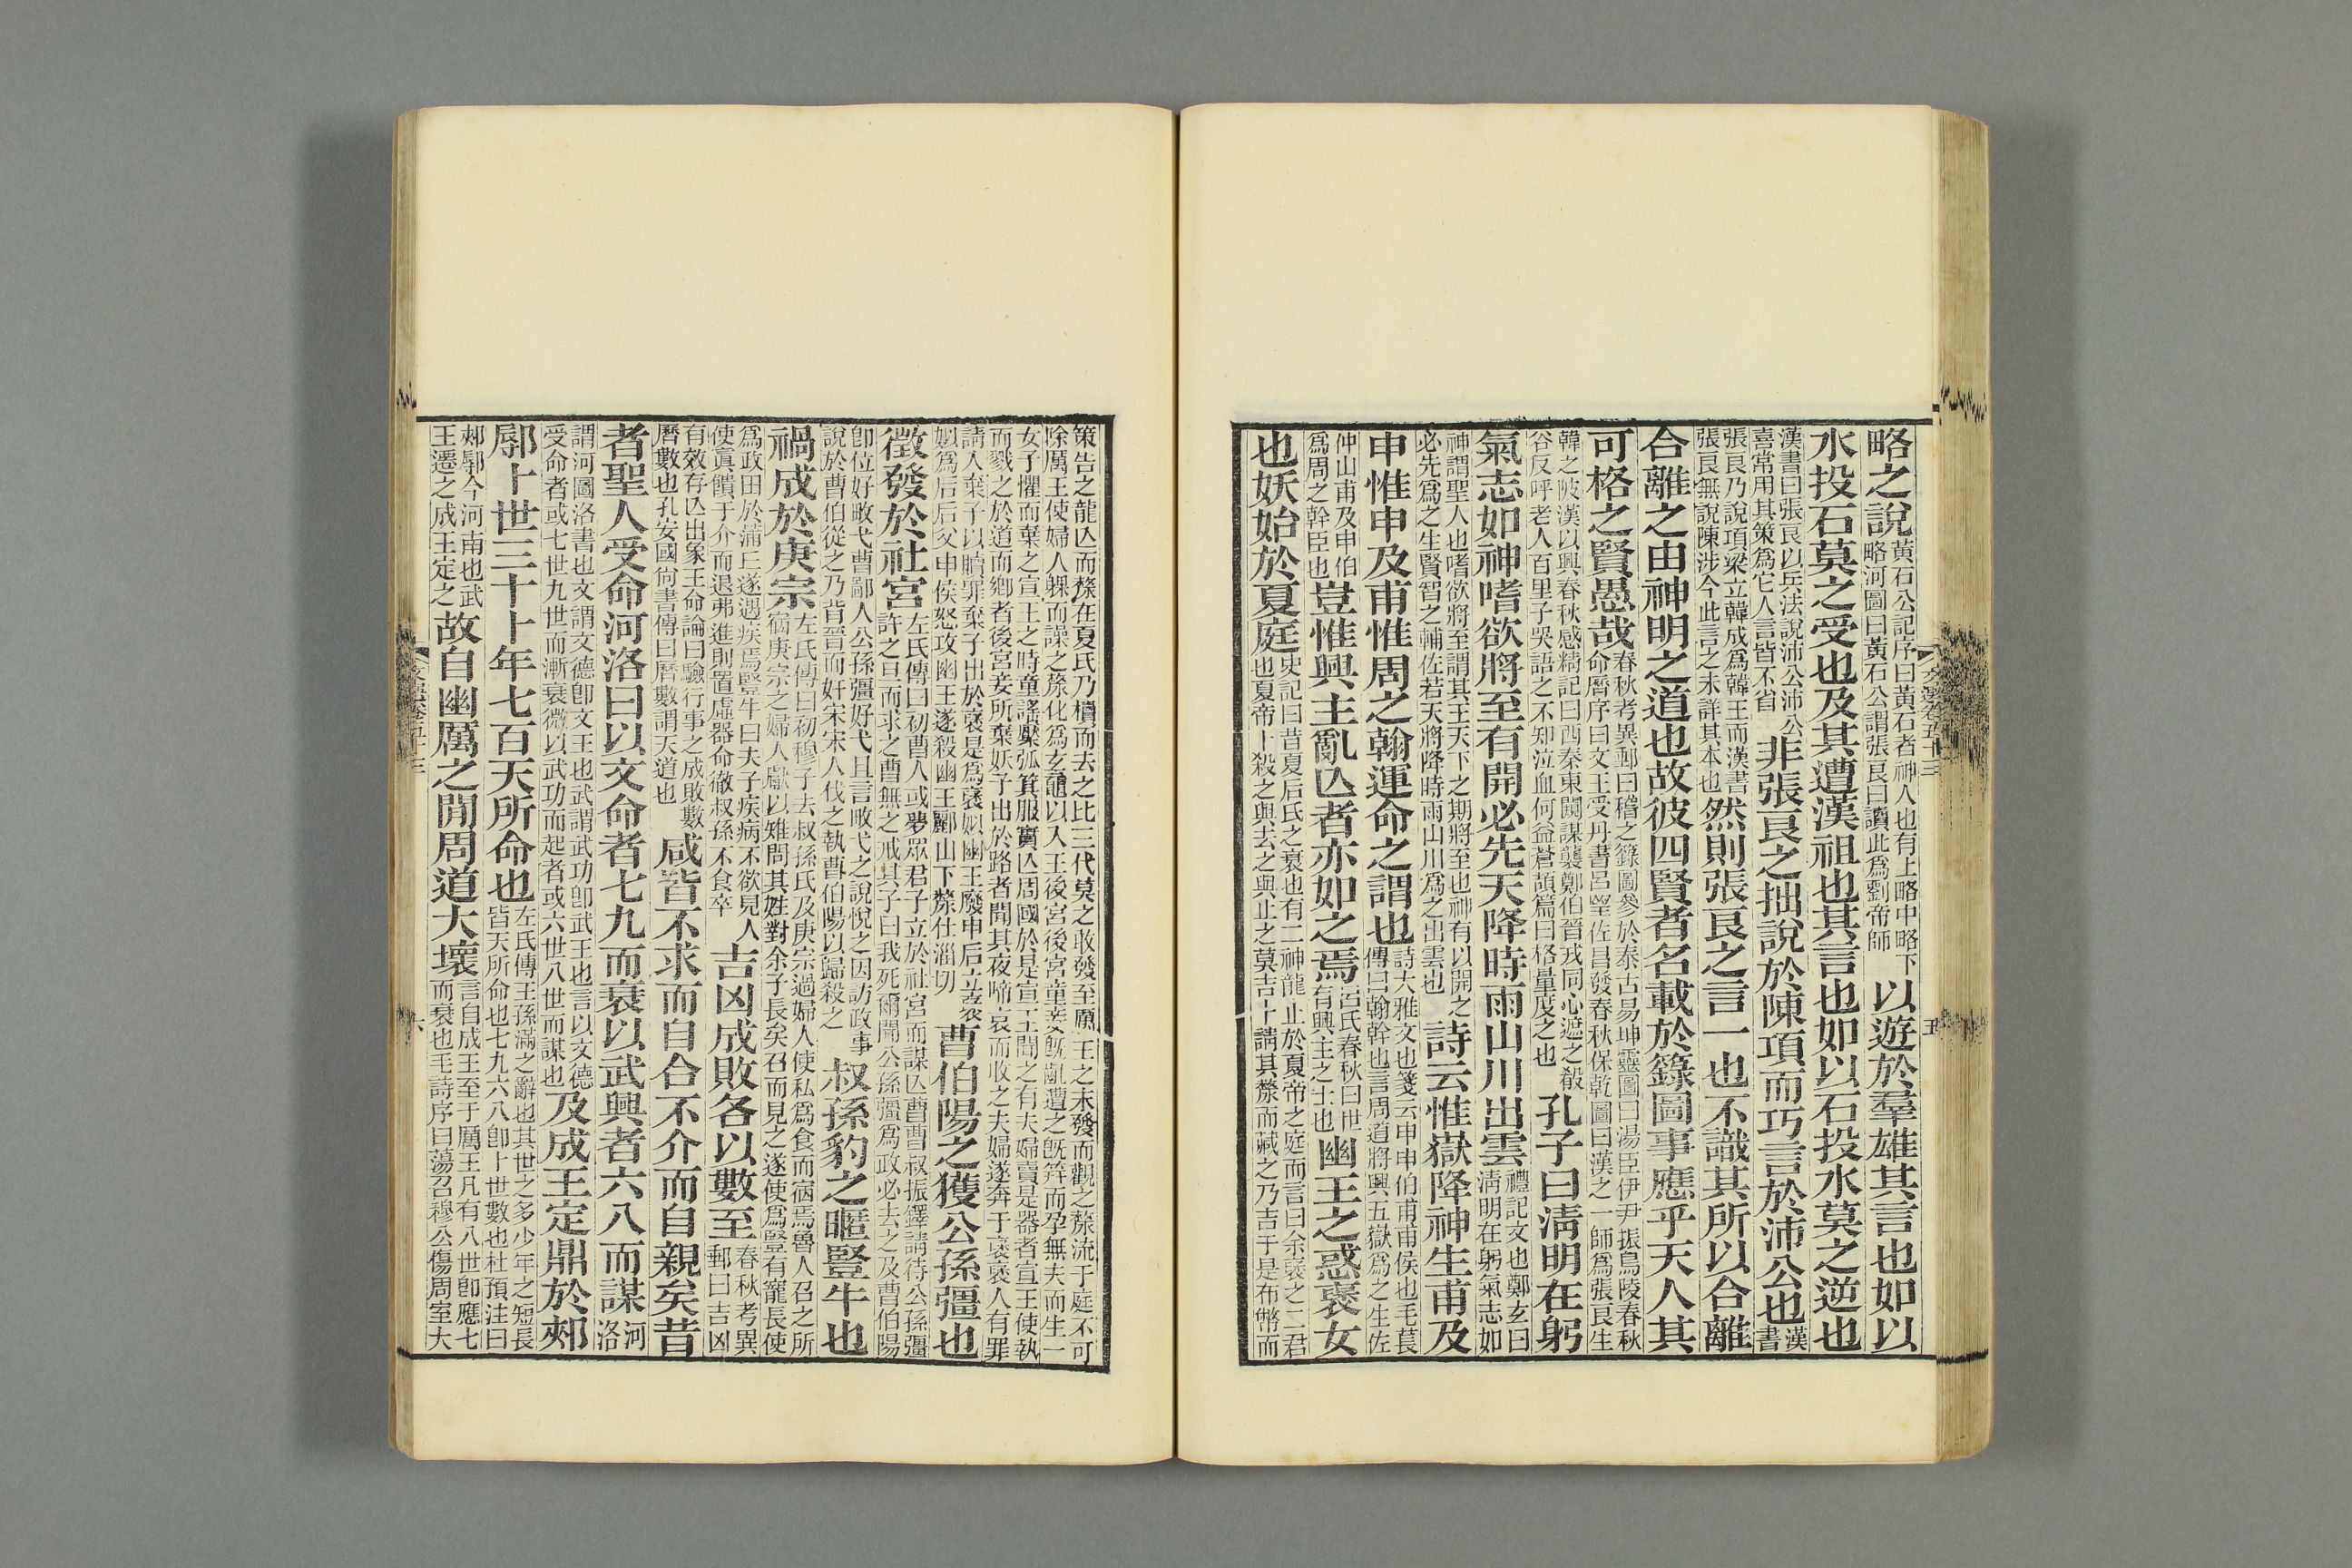 略之說黃石公記序曰黃石者神人也有上略中略下略河圖曰黃石公謂張良曰讀此爲劉帝師以遊於羣雄其言也如以
水投石莫之受也及其遭漢祖也其言也如以石投水莫之逆也
漢書曰張良以兵法說沛公沛公喜常用其策爲它人言皆不省非張良之拙說於陳項而巧言於沛公也漢書
張良乃說項梁立韓成爲韓王而漢書張良無說陳涉今此言之未詳其本也然則張良之言一也不識其所以合離
合離之由神明之道也故彼四賢者名載於籙圖事應乎天人其
可格之賢愚哉春秋考異郵曰稽之籙圖參於泰古易坤靈圖曰湯臣伊尹振鳥陵春秋命曆序曰文王受丹書呂望佐昌發春秋保乾圖曰漢之一師爲張良生
韓之陂漢以興春秋感精記曰西秦東闚謀襲鄭伯晉戎同心遮之殽谷反呼老人百里子哭語之不知泣血何益蒼頡篇曰格量度之也孔子曰清明在躬
氣志如神嗜欲將至有開必先天降時雨山川出雲禮記文也鄭玄曰清明在躬氣志如
神謂聖人也嗜欲將至謂其王天下之期將至也神有以開之必先爲之生賢智之輔佐若天將降時雨山川爲之出雲也詩云惟嶽降神生甫及
申惟申及甫惟周之翰運命之謂也詩大雅文也箋云申申伯甫甫侯也毛萇傳曰翰幹也言周道將興五嶽爲之生佐
仲山甫及申伯爲周之幹臣也豈惟興主亂亾者亦如之焉呂氏春秋曰世有興主之士也幽王之惑褒女
也妖始於夏庭史記曰昔夏后氏之衰也有二神龍止於夏帝之庭而言曰余褒之二君也夏帝卜殺之與去之與止之莫吉卜請其漦而藏之乃吉于是布幣而
策告之龍亾而漦在夏氏乃櫝而去之比三代莫之敢發至厲王之末發而觀之漦流于庭不可除厲王使婦人躶而譟之漦化爲玄黿以入王後宮後宮童妾旣齓遭之旣筓而孕無夫而生一
女子懼而棄之宣王之時童謠檿弧箕服實亾周國於是宣王聞之有夫婦賣是器者宣王使執而戮之於道而鄉者後宮妾所棄妖子出於路者聞其夜啼哀而收之夫婦遂奔于褒褒人有罪
請入棄子以贖罪棄子出於褒是爲褒姒幽王廢申后立褒姒爲后后父申侯怒攻幽王遂殺幽王驪山下漦仕淄切曹伯陽之獲公孫彊也
徵發於社宮左氏傳曰初曹人或夢眾君子立於社宮而謀亾曹曹叔振鐸請待公孫彊許之旦而求之曹無之戒其子曰我死爾聞公孫彊爲政必去之及曹伯陽
卽位好畋弋曹鄙人公孫彊好弋且言畋弋之說悅之因訪政事說於曹伯從之乃背晉而奸宋宋人伐之執曹伯陽以歸殺之叔孫豹之暱豎牛也
禍成於庚宗左氏傳曰初穆子去叔孫氏及庚宗過婦人使私爲食而宿焉魯人召之所宿庚宗之婦人獻以雉問其姓對余子長矣召而見之遂使爲豎有寵長使
爲政田於蒲丘遂遇疾焉豎牛曰夫子疾病不欲見人使寘饋于介而退弗進則置虛器命徹叔孫不食卒吉凶成敗各以數至春秋考異郵曰吉凶
有效存亾出象王命論曰驗行事之成敗數曆數也孔安國尚書傳曰曆數謂天道也咸皆不求而自合不介而自親矣昔
者聖人受命河洛曰以文命者七九而衰以武興者六八而謀河洛
謂河圖洛書也文謂文德卽文王也武謂武功卽武王也言以文德受命者或七世九世而漸衰微以武功而起者或六世八世而謀也及成王定鼎於郟
鄏卜世三十卜年七百天所命也左氏傳王孫滿之辭也其世之多少年之短長皆天所命也七九六八卽卜世數也杜預注曰
郟鄏今河南也武王遷之成王定之故自幽厲之閒周道大壞言自成王至于厲王凡有八世卽應七而衰也毛詩序曰蕩召穆公傷周室大
文選卷五十三
五
文選卷五十三
六